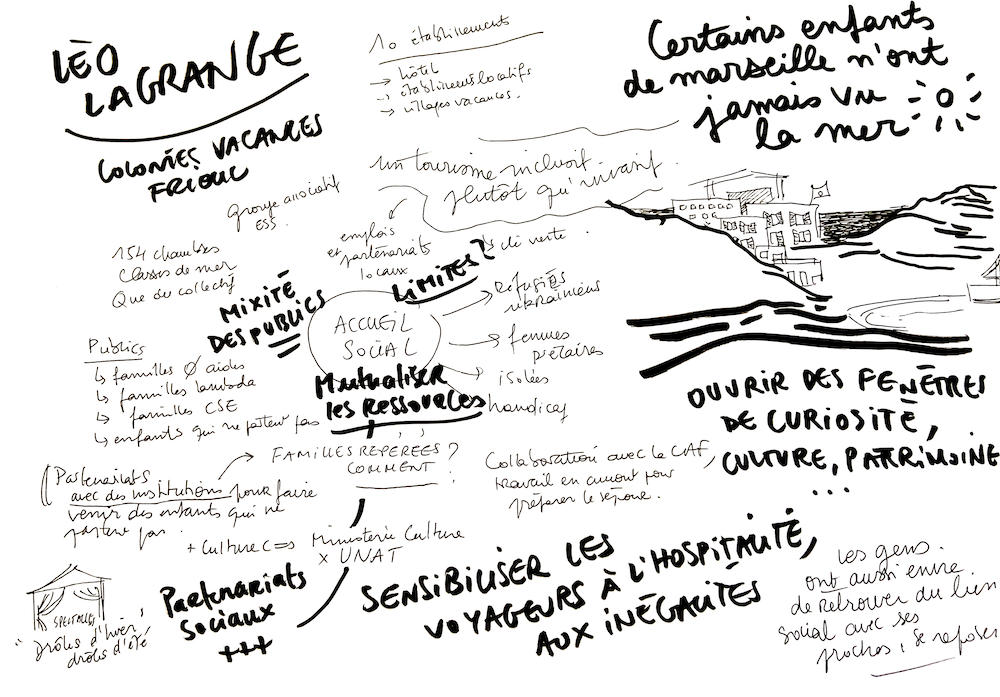 LÉO
LAGRANGE
COLONIES VACANCES
FRIOUL
10 établissements
→ hôtel
→ établissements locatifs
→ villages vacances.
Certains enfants
de marseille n'ont
jamais vu
la mer
un tourisme inclusif
plutôt qu'invasif.
Groupe associatif
ESS.
emplois
et partenariats
locaux
LIMITES?
clé verte
154 chambres
Classes de mer
Que du collectif
MIXITÉ
DES PUBLICS
ACCUEIL
SOCIAL
→ Réfugiés
ukrainiens
→ femmes
précaires
→ isolées
handicap
Mutualiser
les Ressources
Publics
↳ familles Ø aidées
↳ familles lambda
↳ familles CSE
↳ enfants qui ne partent pas
FAMILLES REPÉRÉES?
COMMENT?
Partenariats
avec des institutions pour faire
venir des enfants qui ne
partent pas.
Collaboration avec la CAF,
travail en amont pour
préparer le séjour.
OUVRIR DES FENÊTRES
DE CURIOSITÉ,
CULTURE, PATRIMOINE
...
+ Culture C
Ministère Culture
x UNAT
Partenariats
Sociaux
+++
SPECTACLES
"Drôles d'hiver,
drôles d'été
SENSIBILISER LES
VOYAGEURS À L'HOSPITALITÉ,
AUX INÉGALITÉS
Les gens.
ont aussi envie
de retrouver du lien
social avec ses
proches, se reposer